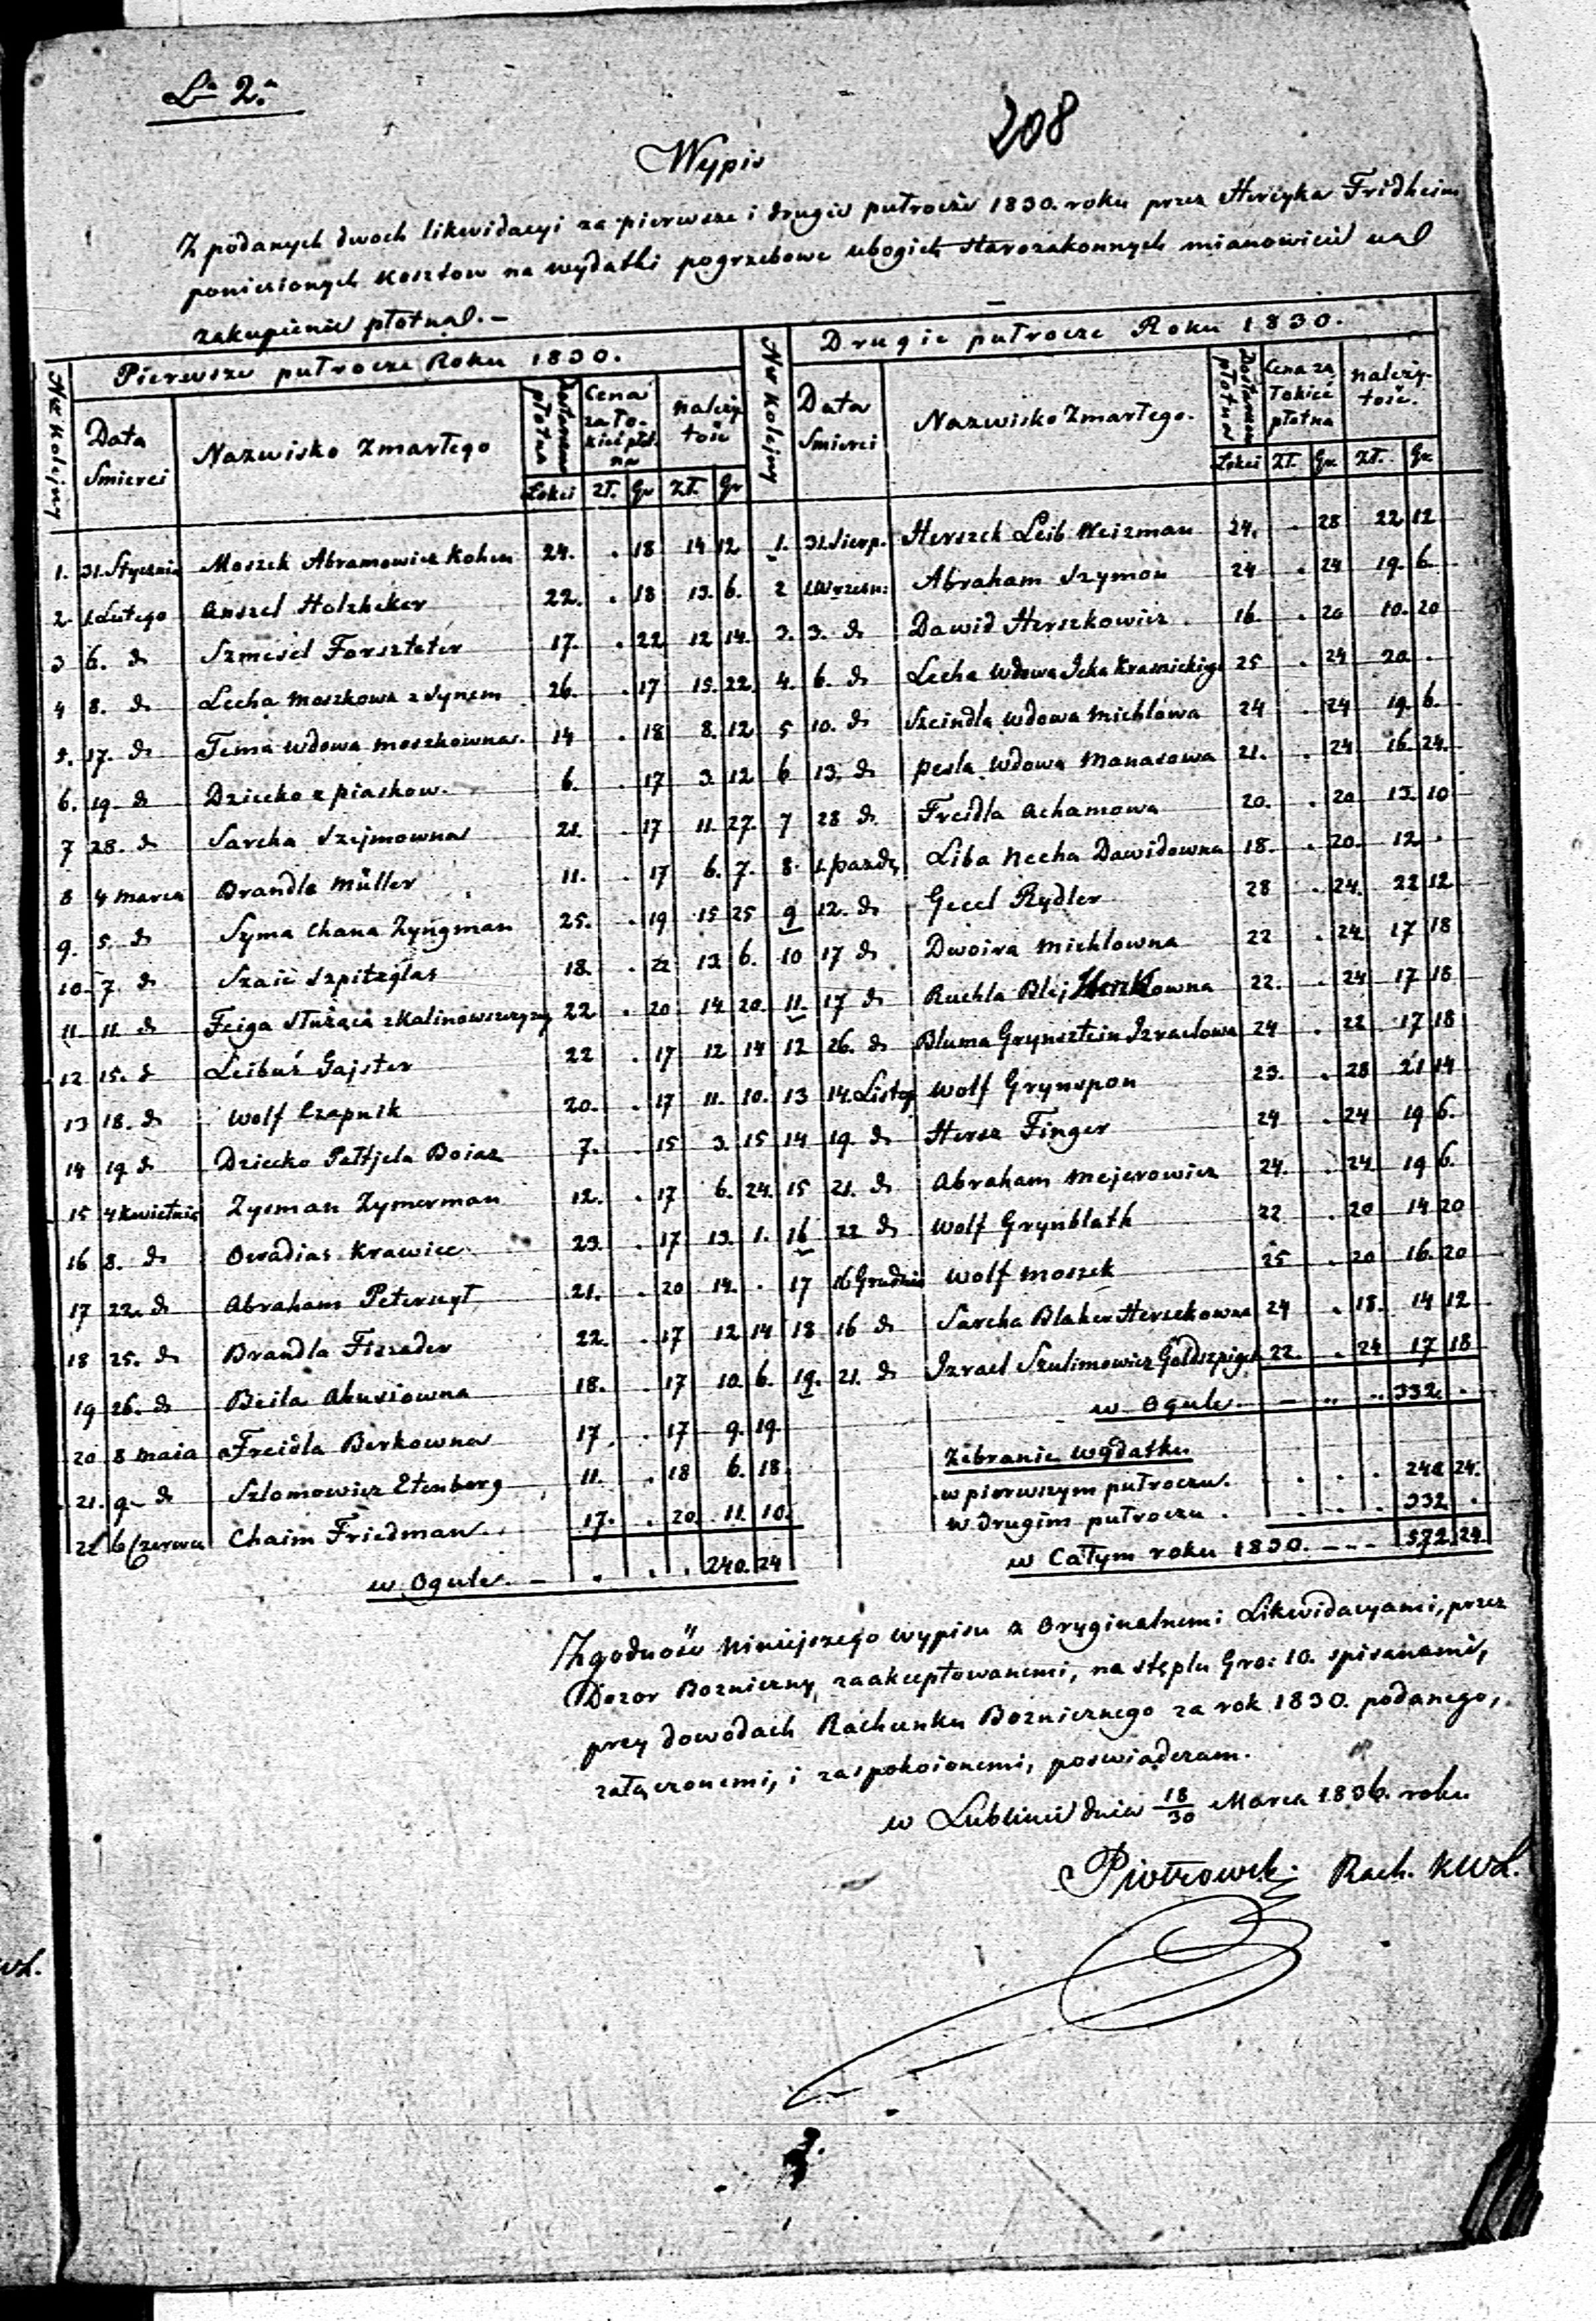 Lra 2.a
208
Wypis
Z podanych dwoch likwidacyi za pierwsze i drugie putrocze 1830. roku przez Hercyka Fridheim
poniesionych kosztow na wydatki pogrzebowe ubogich starozakonnych mianowicie na
zakupienie płotna. –
Nr Kolejny
Pierwsze putrocze Roku 1830.
Data Smierci
Nazwisko Zmarłego
Dostawiono płotna
Łokci
Cena za łokieć płótna
Zł. Gr
należytość
Zł. Gr
Nr Kolejny
Drugie putrocze Roku 1830.
Data Smierci
Nazwisko Zmarłego.
Dostawiono płotna
Łokci
Cena za łokieć płotna
Zł. Gr.
należytość.
Zł. Gr
1. 31. Stycznia Moszek Abramowicz Kohen 24. . 18 14 12 1. 31. Sierp. Herszek Leib Weizman 24. . 28 22 12
2. 1. Lutego Anszel Holzheker 22. . 18 13. 6. 2 1. Wrzesn: Abraham Szymon 24 . 24 19. 6.
3 6. do Szmejel Forszteter 17. . 22 12 14. 3. 3. do Dawid Herszkowicz . 16. . 20 10. 20
4 8. do Lecha Moszkowa z Synem 26. . 17 15. 22. 4. 6. do Lecha Wdowa Icka Krasnickiego 25 . 24 20. .
5. 17. do Tema Wdowa Moszkowna. 14 . 18 8. 12 5 10. do Szeindla Wdowa Michlowa 24 . 24 19. 6.
6. 19. do Dziecko z piaskow. 6. . 17 3. 12 6 13. do Pesla Wdowa Manasowa 21. . 24 16. 24.
7 28. do Sarcha Szejmowna 21. . 17 11. 27. 7 28 do Freidla Achamowa 20. . 20 13. 10
8 4 Marca Brandla Müller 11. . 17 6. 7. 8. 1. pazdz. Liba Necha Dawidowna 18. . 20. 12 .
9. 5. do Syma Chana Zyngman 25. . 19 15 25 9 12. do Gecel Rydler 28 . 24. 22 12
10. 7. do Szaie Szpitzglas 18. . 22 13 6. 10 17 do Dwoira Michlowna 22 . 24 17 18
11. 11. do Feiga służąca z Kalinowszczyzny 22 . 20 14. 20. 11. 17 do Ruchla Blej Herszkowna 22. . 24 17 18
12 15. do Leibuś Gajster 22 . 17 12 14 12 26. do Bluma Grynsztein Izraelowa 24 . 22 17 18
13 18. do Wolf Czapnik 20. . 17 11. 10. 13 14. Listop Wolf Grynspon 23. . 28 21 14
14 19 do Dziecko Paltjela Boiaz 7. . 15 3. 15 14 19. do Hersz Finger 24 . 24 19 6.
15 4 Kwietnia Zysman Zymerman 12. . 17 6. 24. 15 21. do Abraham Mejerowicz 24. . 24 19 6.
16 8. do Owadias Krawiec. 23. . 17 13. 1. 16 22 do Wolf Grynblath 22 . 20 14 20
17 22. do Abraham Peternyl 21. . 20 14. . 17 16 Grudnia Wolf Moszek 25 . 20 16. 20
18 25. do Brandla Fiszader 22. . 17 12 14 18 16 do Sarcha Blaher Herszkowna 24 . 18. 14 12
19 26. do Beila Abusiowna 18. . 17 10. 6. 19. 21. do Izrael Szulimowicz Goldszpigel 22. . 24 17 18
20 8 Maia Freidla Berkowna 17. . 17 9. 19. w Ogule. – 332. .
21. 9. do Szlomowicz Etenberg 11. . 18 6. 18.
22 6 Czerwca Chaim Friedman. 17. . 20. 11. 10.
w Ogule. – . . . 240. 24
Zebranie Wydatku
w pierwszym putroczu. . . . . 240. 24.
w drugim putroczu . . . . 332 .
w Całym roku 1830. – – – 572. 24.
Zgodność niniejszego wypisu z Oryginalnemi Likwidacyami, przez
Dozor Bozniczny, zaakceptowanemi, na stęplu Gro: 10. spisanami,
przy dowodach Rachunku Boznicznego za rok 1830. podanego,
załączonemi, i zaspokoionemi, poswiadczam.
w Lublinie dnia 18/30 Marca 1836. roku
Piotrowski Rach. KWL.